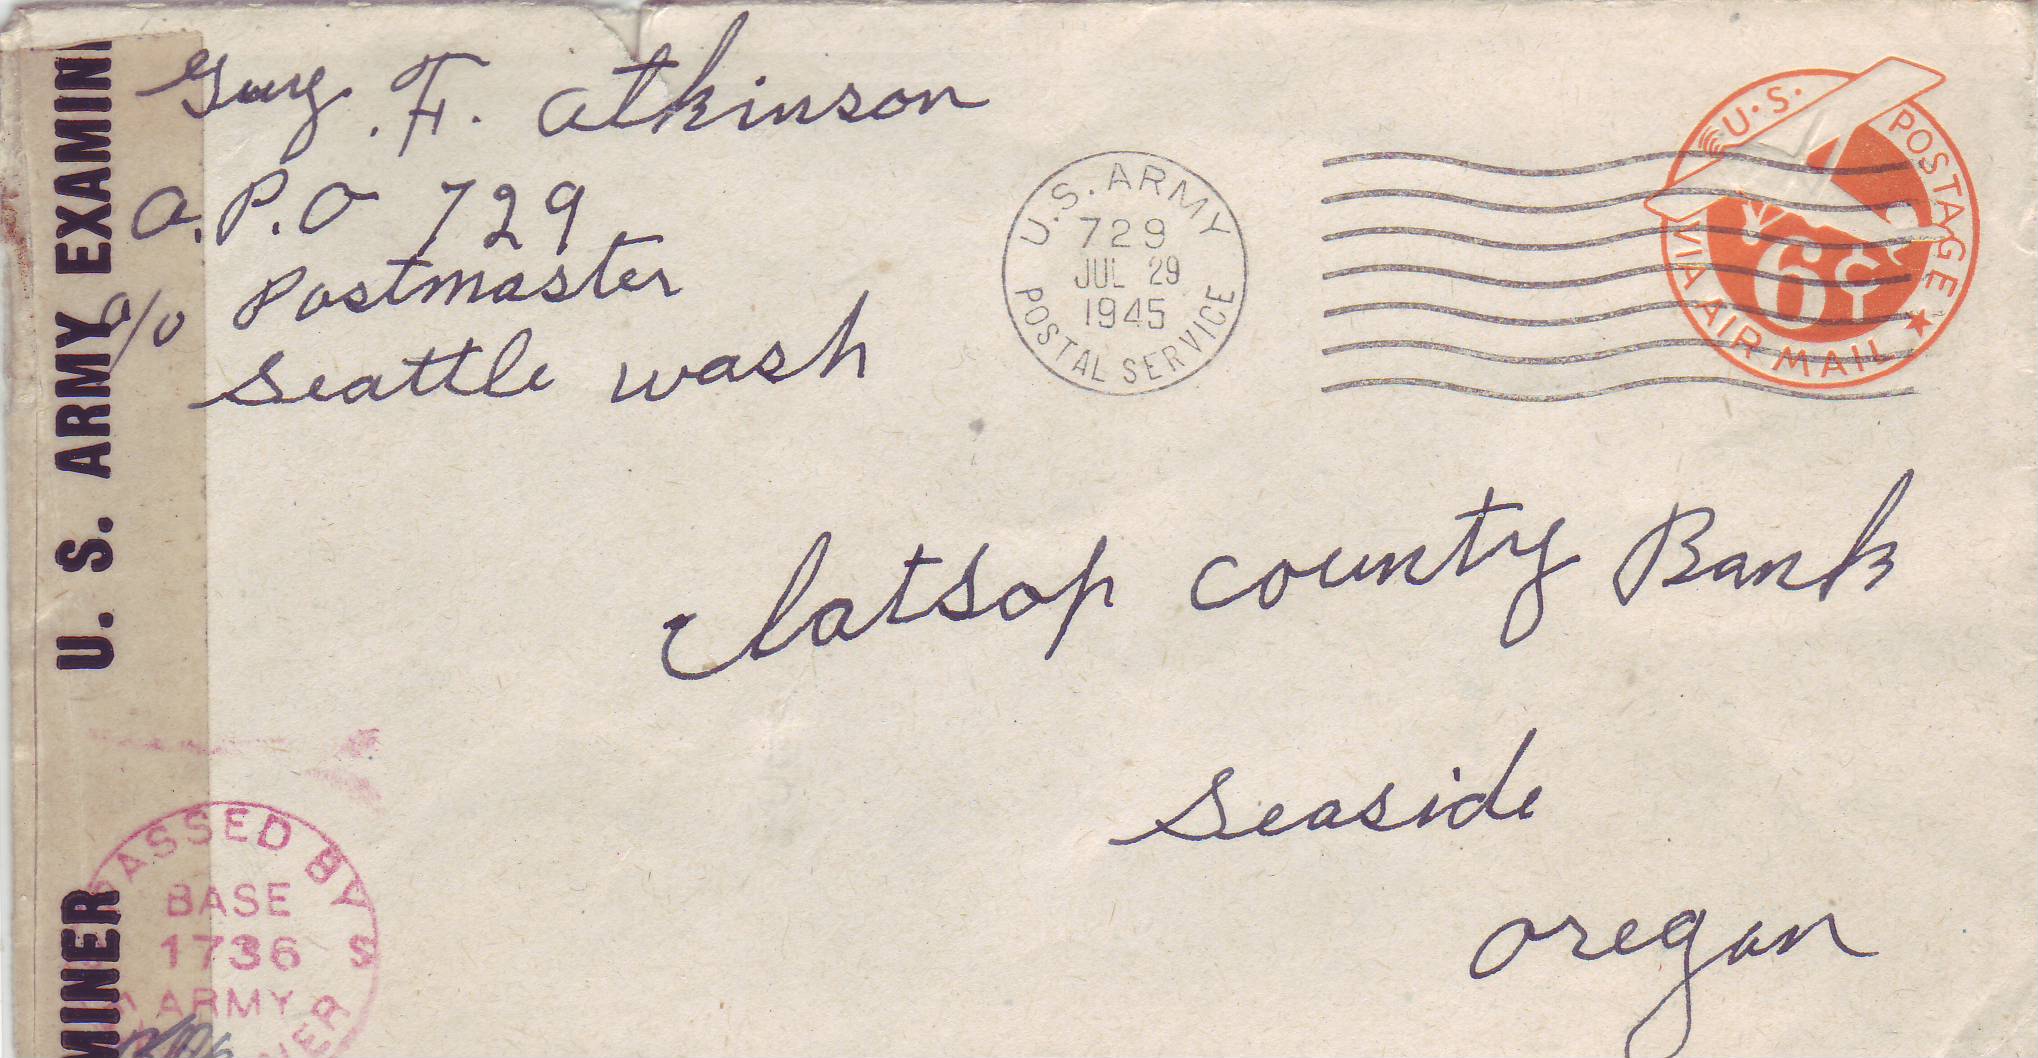 Guy. F. Atkinson
A.P.O 729
c/o Postmaster
Seattle wash
U.S. ARMY
729
JUL 29
1945
POSTAL SERVICE
U.S. POSTAGE
6¢
VIA AIR MAIL
Clatsop County Bank
Seaside
Oregon
U. S. ARMY EXAMIN
MINER
PASSED BY
BASE
1736
ARMY
NER